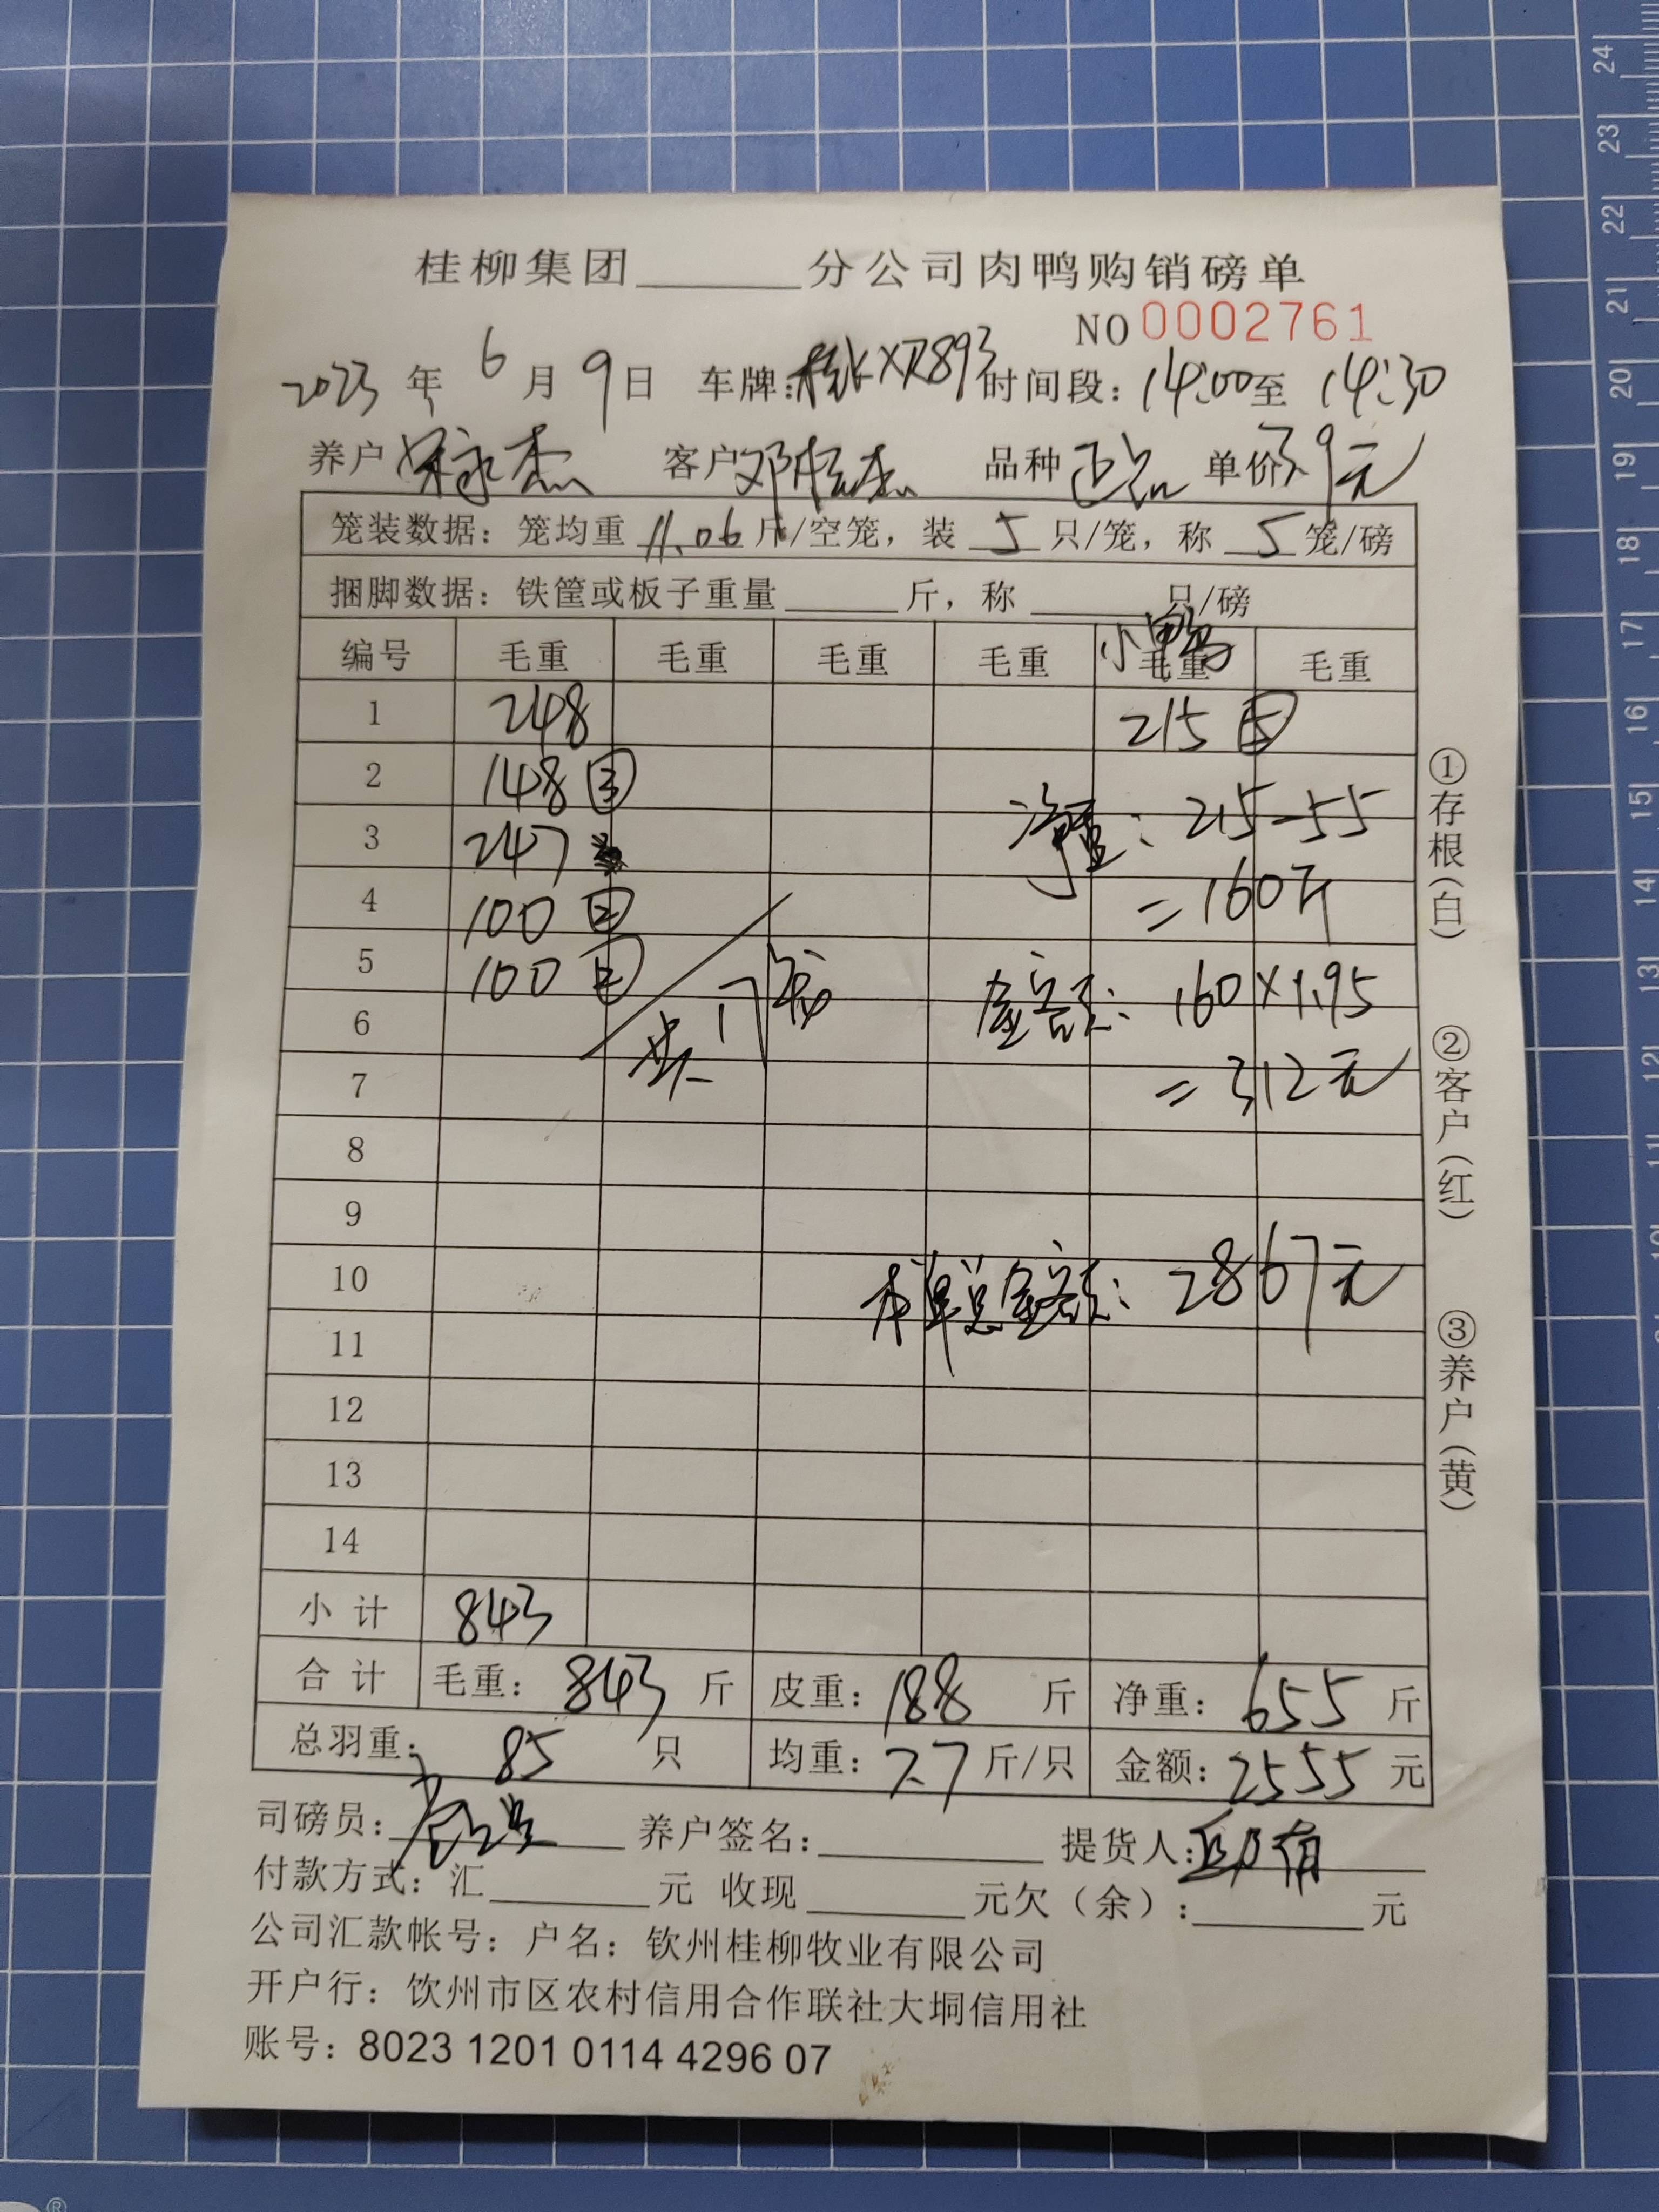 桂柳集团______分公司肉鸭购销磅单
NO 0002761
2023 年 6 月 9 日 车牌:桂KXR893 时间段:14:00至 14:30
养户 客户 品种 正品 单价3.9元
笼装数据:笼均重 11.06 斤/空笼,装 5 只/笼,称 5 笼/磅
捆脚数据:铁筐或板子重量______斤,称______只/磅
编号 毛重 毛重 毛重 毛重 小鸭 毛重 毛重
1 248 215 ⑤
2 148 ③
净重: 215-55
3 247
=160斤
4 100 ②
5 100 ②
金额: 160×1.95
6
7
=312元
8
9
10
本单总金额: 2867元
11
12
13
14
小计 843
合计 毛重: 843 斤 皮重: 188 斤 净重: 655 斤
总羽重: 85 只 均重: 7.7 斤/只 金额: 2555 元
司磅员: 养户签名:______ 提货人:
付款方式:汇______元 收现______元欠(余):______元
公司汇款帐号:户名:钦州桂柳牧业有限公司
开户行:钦州市区农村信用合作联社大垌信用社
账号:8023 1201 0114 4296 07
①存根(白)
②客户(红)
③养户(黄)
24
23
22
21
20
19
18
17
16
15
14
13
12
11